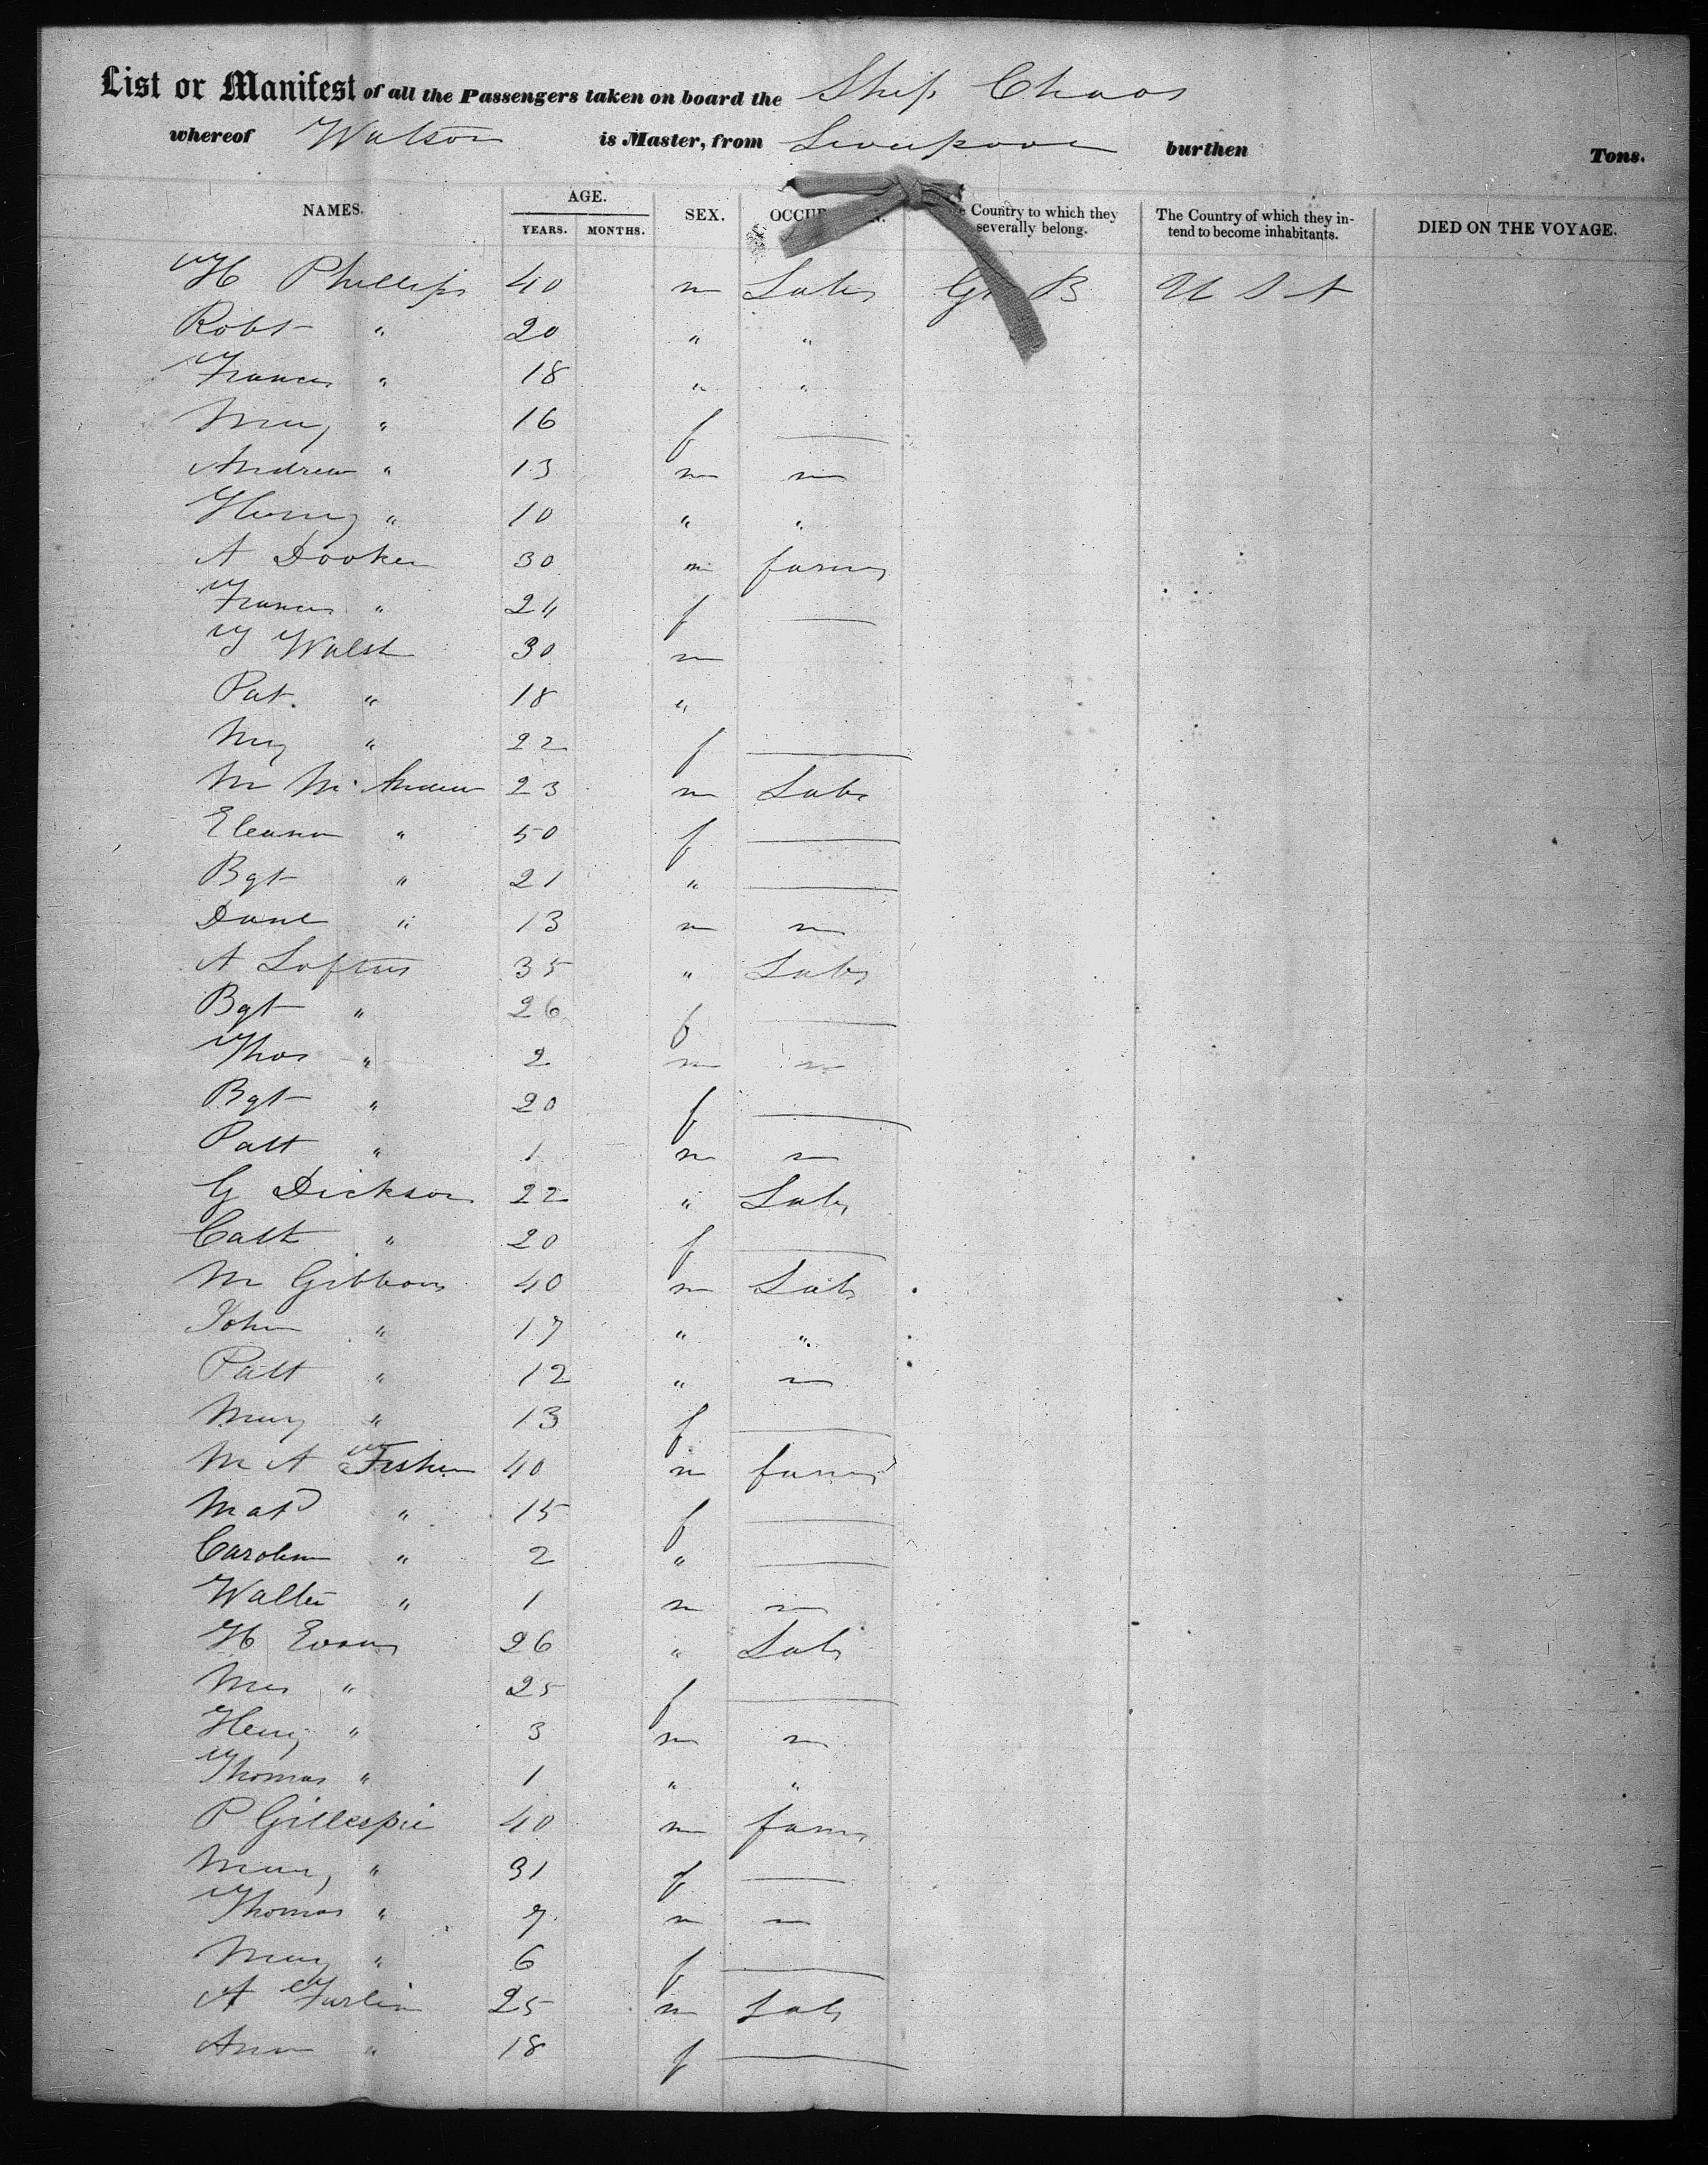 List or Manifest of all the Passengers taken on board the Ship Chaos
whereof Watson is Master, from Liverpool burthen Tons.
NAMES. AGE. YEARS. MONTHS. SEX. OCCUP N. Country to which they severally belong. The Country of which they intend to become inhabitants. DIED ON THE VOYAGE.
H Phillips 40 m Labr Gt B U S A
Robt " 20 " "
Francis " 18 " "
Mary " 16 f —
Andrew " 13 m m
Henry " 10 " "
A Dooken 30 m farmr
Frances " 24 f —
Walsh 30 m
Pat. " 18 "
My " 22 f —
M Mc Andrew 23 m Labr
Eleanor " 50 f —
Bgt " 21 " —
Danl " 13 m m
A Loftus 35 " Labr
Bgt " 26 f —
Thos " 2 m m
Bgt " 20 f —
Patt " 1 m m
G Dickson 22 " Labr
Cath " 20 f —
M Gibbons 40 m Labr
John " 17 " "
Patt " 12 " m
Mary " 13 f —
M A Fisher 40 m farmr
Mat " 15 f —
Caroline " 2 " —
Walter " 1 m m
H Evans 26 " Labr
Mrs " 25 f —
Henry " 3 m m
Thomas " 1 " "
P Gillespie 40 m farmr
Mary " 31 f —
Thomas " 7 m m
Mary " 6 f —
A 25 m Labr
Ann " 18 f —